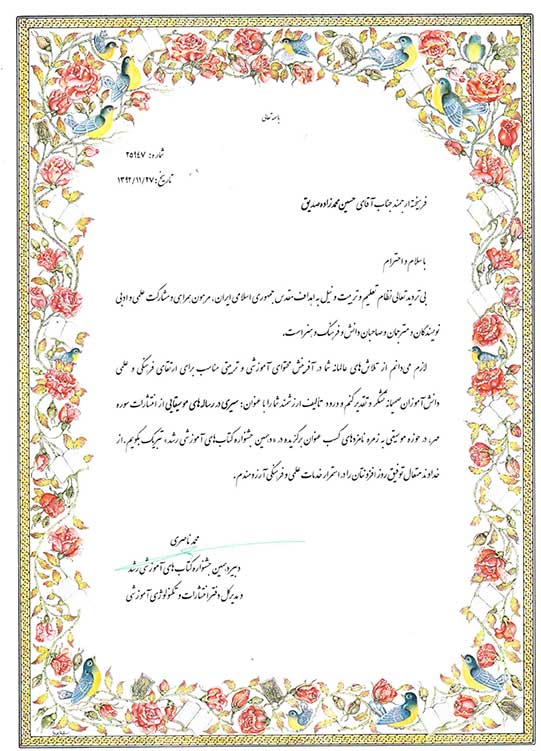 باسمه تعالی
شماره: ۲۵۹۴۷
تاریخ: ۱۳۹۲/۱۱/۲۷
فرهیخته ارجمند جناب آقای حسین محمدزاده صدیق
با سلام و احترام
بی تردید تعالی نظام تعلیم و تربیت و نیل به اهداف مقدس جمهوری اسلامی ایران، مرهون همراهی و مشارکت علمی و ادبی
نویسندگان و مترجمان و صاحبان دانش و فرهنگ و هنر است.
لازم می‌دانم از تلاش‌های عالمانه شما در آفرینش محتوای آموزشی و تربیتی مناسب برای ارتقای فرهنگی و علمی
دانش‌آموزان صمیمانه تشکر و تقدیر کنم و ورود تألیف ارزشمند شما را با عنوان: سیری در رساله‌های موسیقایی از انتشارات سوره
مهر، در حوزه موسیقی به زمره نامزدهای کسب عنوان برگزیده در «دهمین جشنواره کتاب‌های آموزشی رشد» تبریک بگویم. از
خداوند متعال توفیق روزافزونتان را در استمرار خدمات علمی و فرهنگی آرزومندم.
محمد ناصری
دبیر دهمین جشنواره کتاب‌های آموزشی رشد
و مدیرکل دفتر انتشارات و تکنولوژی آموزشی